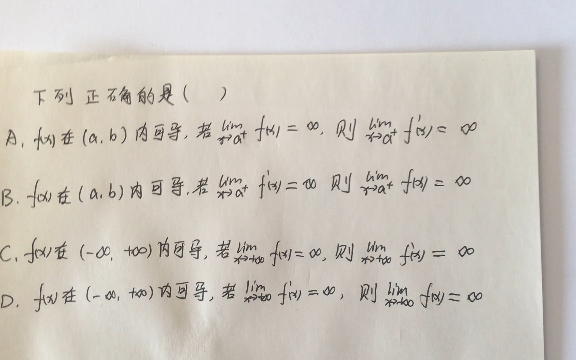 下列正确的是( )
A. f(x)在(a,b)内可导,若 lim x→a⁺ f(x)=∞,则 lim x→a⁺ f'(x)=∞
B. f(x)在(a,b)内可导,若 lim x→a⁺ f'(x)=∞ 则 lim x→a⁺ f(x)=∞
C. f(x)在(-∞,+∞)内可导,若 lim x→+∞ f(x)=∞,则 lim x→+∞ f'(x)=∞
D. f(x)在(-∞,+∞)内可导,若 lim x→+∞ f'(x)=∞,则 lim x→+∞ f(x)=∞